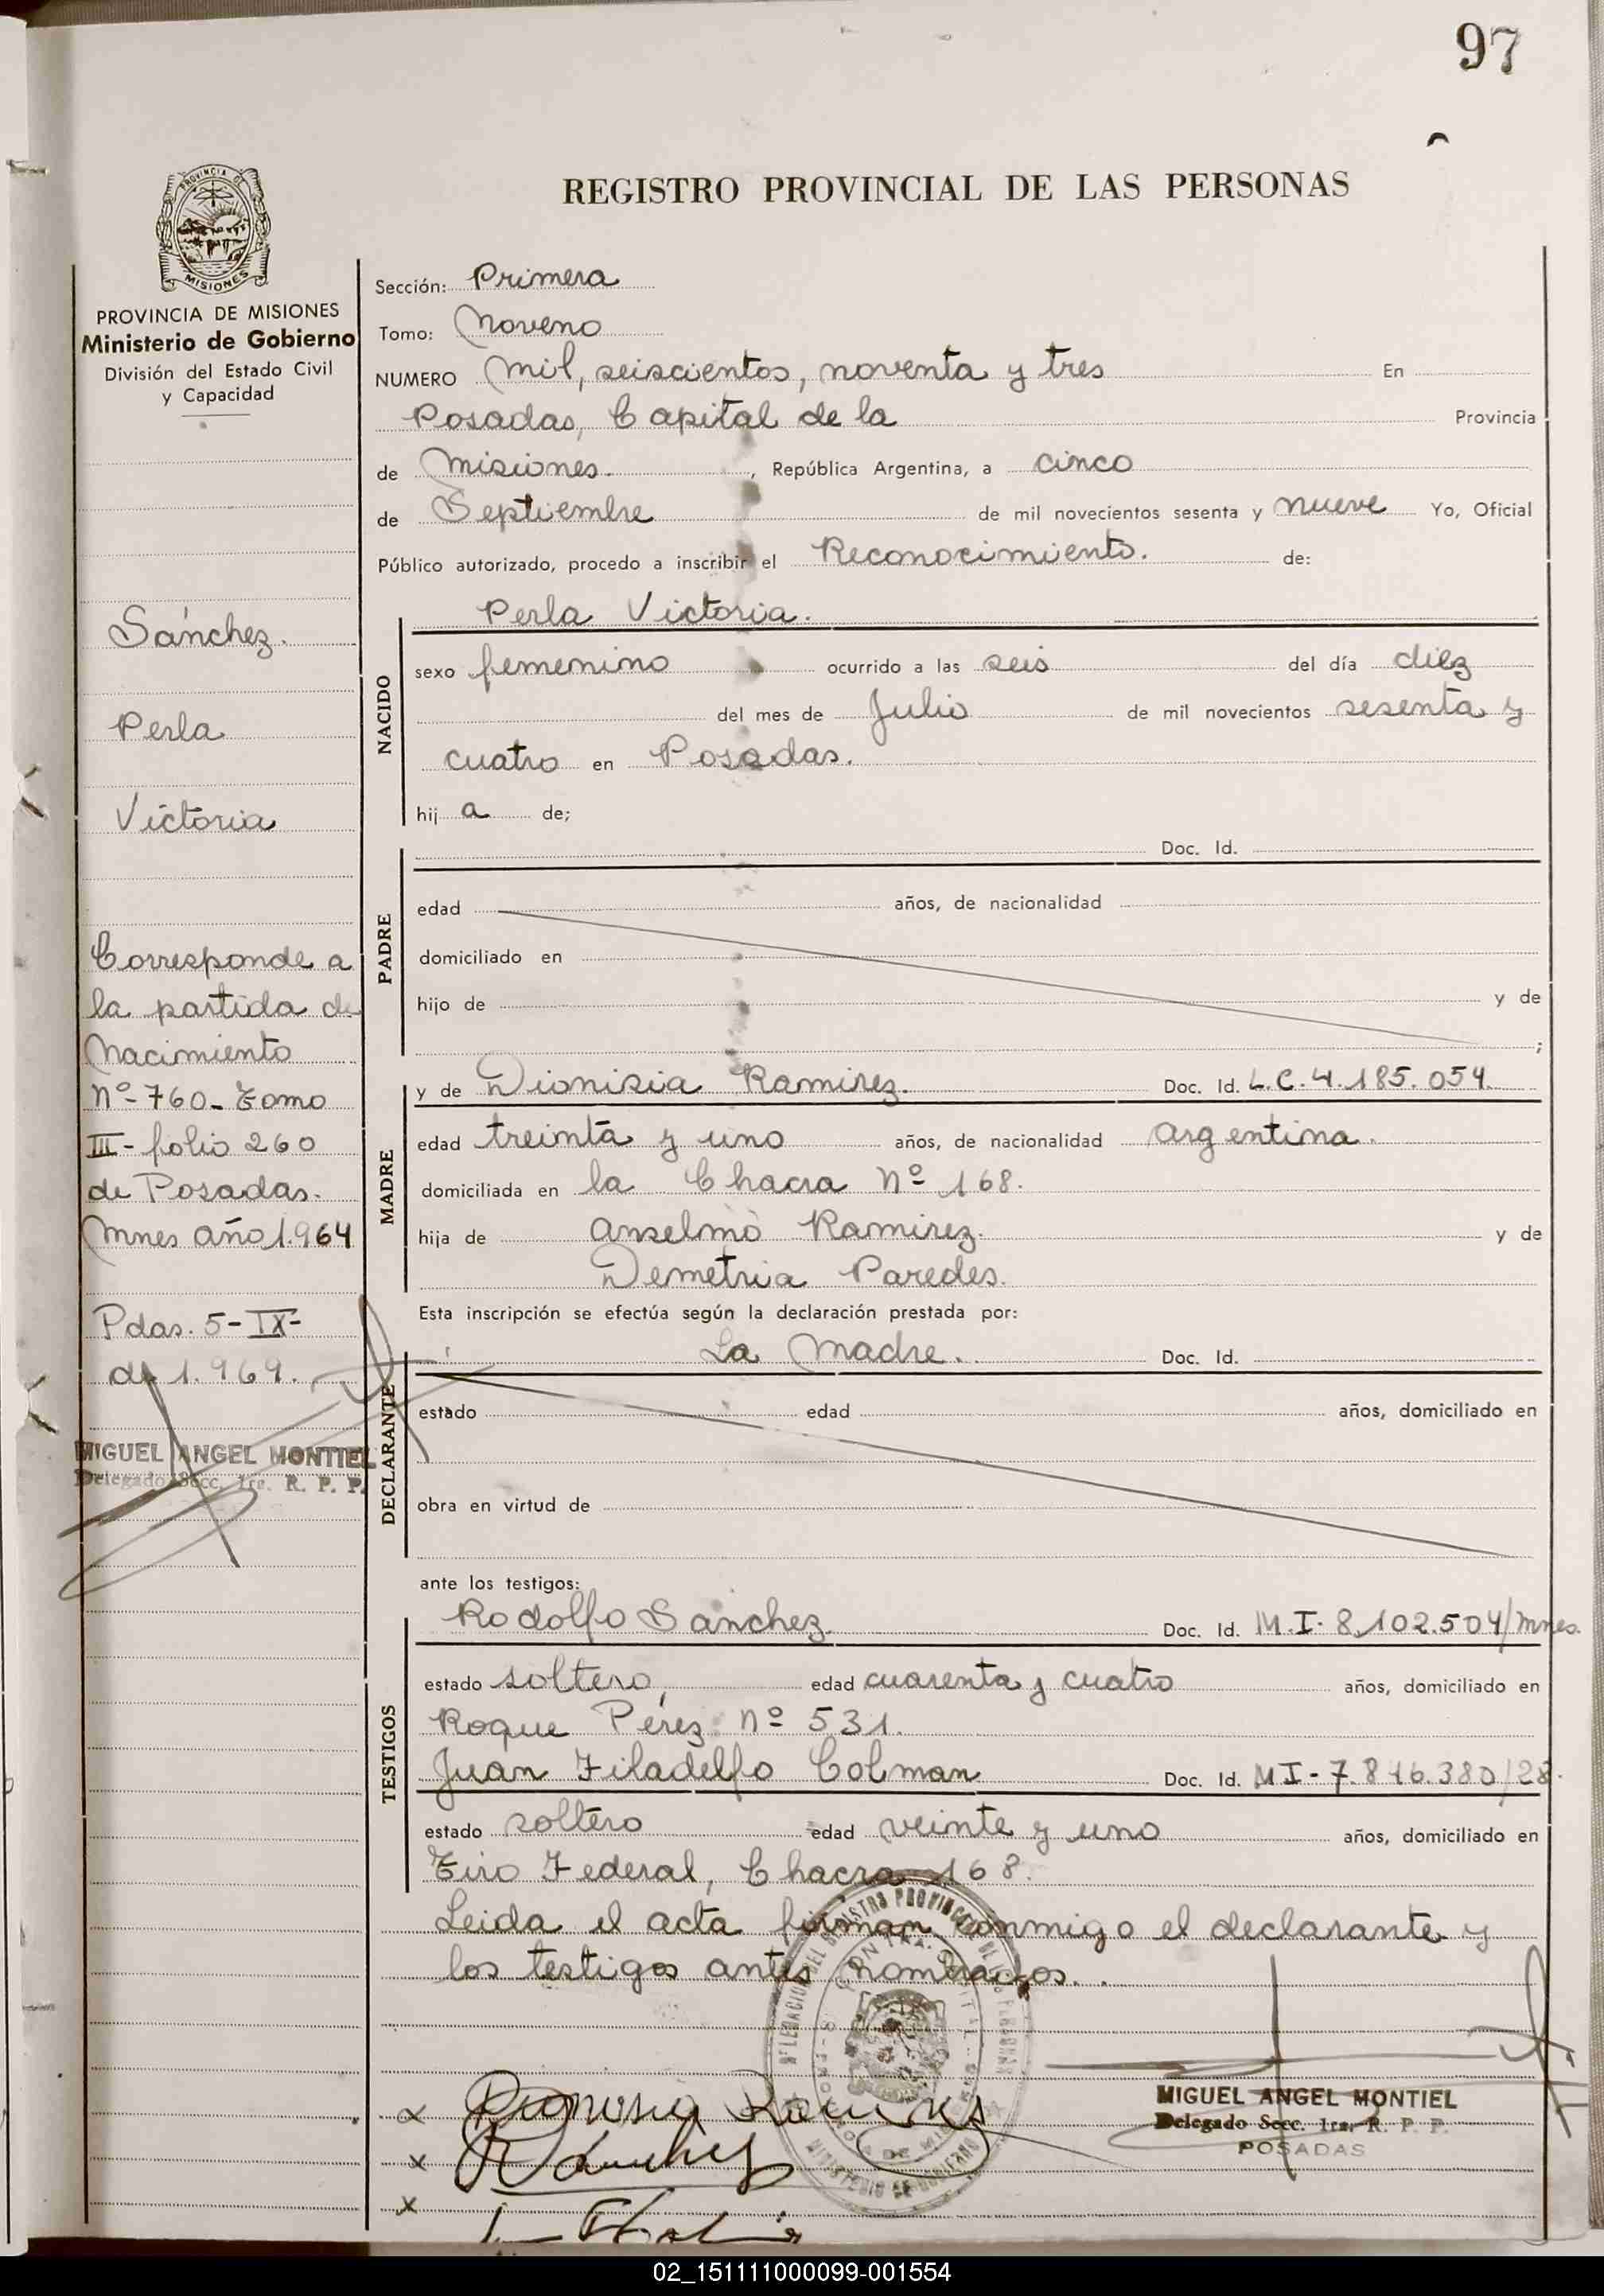 97
REGISTRO PROVINCIAL DE LAS PERSONAS
PROVINCIA DE
MISIONES
PROVINCIA DE MISIONES
Ministerio de Gobierno
División del Estado Civil
y Capacidad
Sánchez.
Perla
Victoria
Corresponde a
la partida de
Nacimiento
Nº-760-Tomo
III-folio 260
de Posadas.
Mnes año 1.964
Pdas. 5-IX-
de 1.969.
MIGUEL ANGEL MONTIEL
Delegado Secc. 1ra. R. P. P.
Sección: Primera
Tomo: Noveno
NUMERO Mil, seiscientos, noventa y tres En
Posadas, Capital de la Provincia
de Misiones. , República Argentina, a cinco
de Septiembre de mil novecientos sesenta y nueve Yo, Oficial
Público autorizado, procedo a inscribir el Reconocimiento. de:
Perla Victoria.
NACIDO
sexo femenino ocurrido a las seis del día diez
del mes de Julio de mil novecientos sesenta y
cuatro en Posadas.
hij a de;
PADRE
Doc. Id.
edad años, de nacionalidad
domiciliado en
hijo de y de
;
MADRE
y de Dionisia Ramirez. Doc. Id. L.C.4.185.054.
edad treinta y uno años, de nacionalidad argentina.
domiciliada en la Chacra Nº 168.
hija de Anselmo Ramirez. y de
Demetria Paredes.
Esta inscripción se efectúa según la declaración prestada por:
DECLARANTE
La Madre. Doc. Id.
estado edad años, domiciliado en
obra en virtud de
ante los testigos:
TESTIGOS
Rodolfo Sanchez. Doc. Id. M.I. 8.102.504/Mnes.
estado soltero, edad cuarenta y cuatro años, domiciliado en
Roque Pérez Nº 531.
Juan Filadelfo Colman Doc. Id. MI-7.846.380/28.
estado soltero edad veinte y uno años, domiciliado en
Tiro Federal, Chacra 168.
Leida el acta firman conmigo el declarante y
los testigos antes nombrados.
Dionisia Ramires
x
RSanchez
x
MIGUEL ANGEL MONTIEL
Delegado Secc. 1ra. R. P. P.
POSADAS
02_151111000099-001554